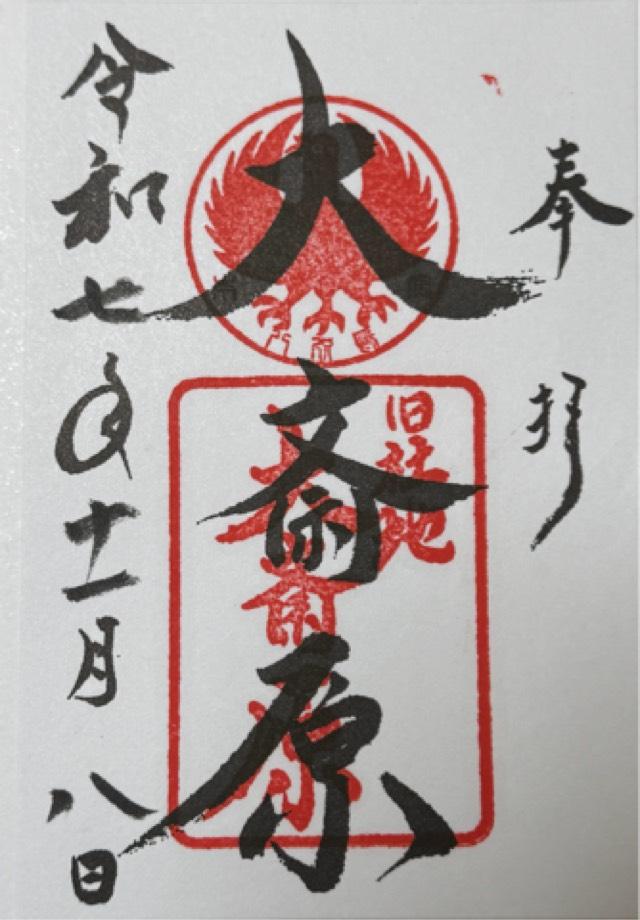 奉拝
大斎原
旧社地
大斎原
令和七年十一月八日